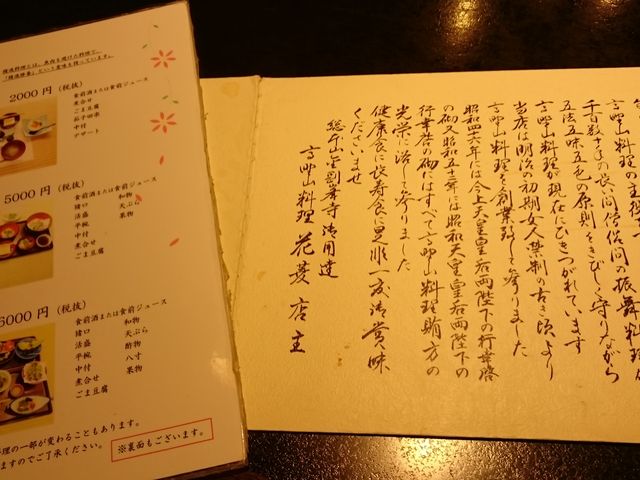 精進料理とは、魚肉を避けた料理で、
「精進修養」という意味も持っています。
2000円 (税抜)
食前酒または食前ジュース
煮合せ
ごま豆腐
茄子田楽
中付
デザート
5000円 (税抜)
食前酒または食前ジュース
猪口 天ぷら
活盛 果物
平椀
中付
煮合せ
ごま豆腐
6000円 (税抜)
食前酒または食前ジュース
猪口 和物
活盛 天ぷら
平椀 酢物
中付 八寸
煮合せ 果物
ごま豆腐
理の一部が変わることもあります。
ますのでご了承ください。
※裏面もございます。
高野山料理の主理
千百数十年の長い間僧俗間の振舞料理
五法五味五色の原則をきびしく守りながら
高野山料理が現在にひきつがれています
当店は明治の初期女人禁制の古き頃より
高野山料理を創業致して参りました
昭和四六年には今上天皇皇后両陛下の行幸啓
の砌又昭和五十二年には昭和天皇皇后両陛下の
行幸啓の砌にはすべて高野山料理賄方の
光栄に浴して参りました
健康食に長寿食に是非一度御賞味
くださいませ
総本山金剛峯寺御用達
高野山料理 花菱店主